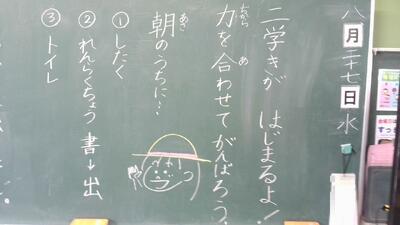 八月二十七日水
二学きが はじまるよ!
力を合わせてがんばろう。
ちから
あ
朝のうちに…
あさ
①したく
②れんらくちょう 書→出
③トイレ